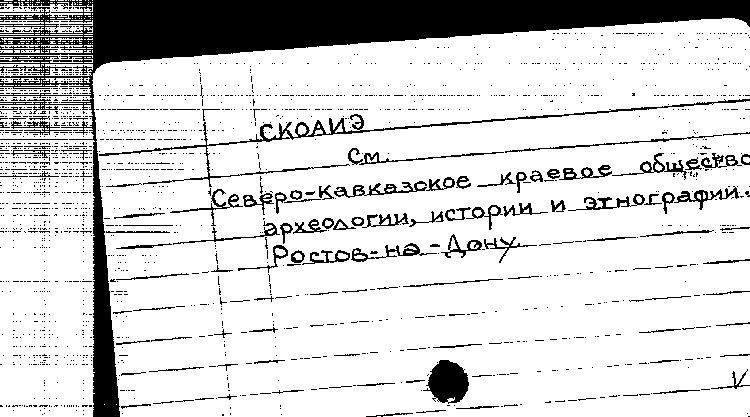 СКОАИЭ
См.
Северо-кавказское краевое общество
археологии, истории и этнографии.
Ростов-на-Дону.
V